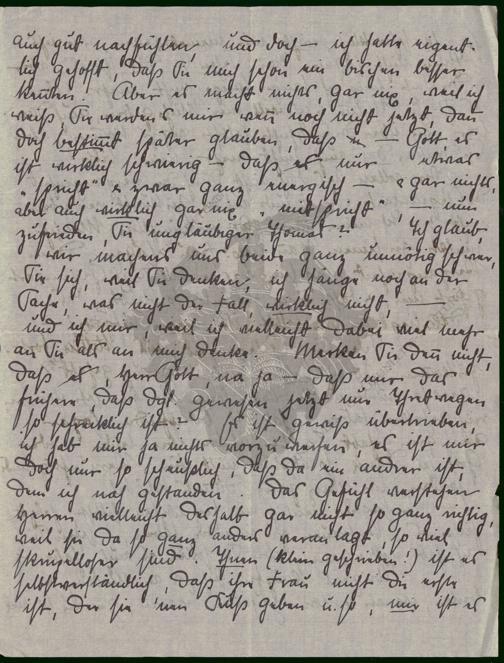 auch gut nachfühlen, und doch – ich hatte eigent-
lich gehofft, daß Sie mich schon ein bischen besser
kennen. Aber es macht nichts, gar nix, weil ich
weiß Sie werden's mir wenn noch nicht jetzt, dann
doch bestimmt später glauben, daß – Gott, es
ist wirklich schwierig – daß es nur etwas
"spricht" & zwar ganz energisch – & gar nichts
aber auch wirklich gar nix "mitspricht", – nun
zufrieden, Sie ungläubiger Thomas? Ich glaub,
wir machens uns beide ganz unnötig schwer,
Sie sich, weil Sie denken, ich hänge noch an der
Sache, was nicht der Fall, wirklich nicht, –
und ich mir, weil ich vielleicht dabei viel mehr
an Sie als an mich denke. Merken Sie denn nicht,
daß es Herr Gott, na ja – daß mir das
frühere, daß dgl. gewesen jetzt nur Ihretwegen
so schrecklich ist? Es ist gewiß übertrieben,
ich hab mir ja nichts vorzuwerfen, es ist mir
doch nur so scheußlich, daß da ein andrer ist,
dem ich nah gestanden. Das Gefühl verstehen
Herren vielleicht deshalb gar nicht so ganz richtig,
weil sie da so ganz anders veranlagt, so viel
skrupelloser sind. Ihnen (klein geschrieben!) ist es
selbstverständlich, daß ihre Frau nicht die erste
ist, der sie 'nen Kuß geben u.s.w., mir ist es